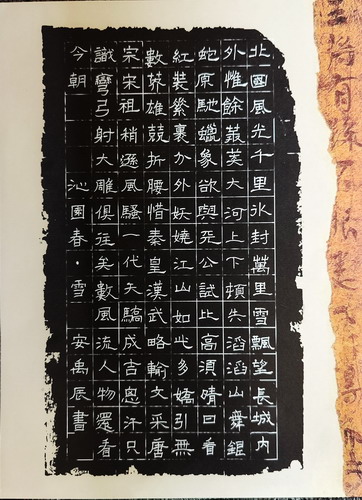 北國風光千里冰封萬里雪飄望長城內
外惟餘莽莽大河上下頓失滔滔山舞銀
蛇原馳蠟象欲與天公試比高須晴日看
紅裝素裹分外妖嬈江山如此多嬌引無
數英雄競折腰惜秦皇漢武略輸文采唐
宗宋祖稍遜風騷一代天驕成吉思汗只
識彎弓射大雕俱往矣數風流人物還看
今朝 沁園春·雪 安禹辰書